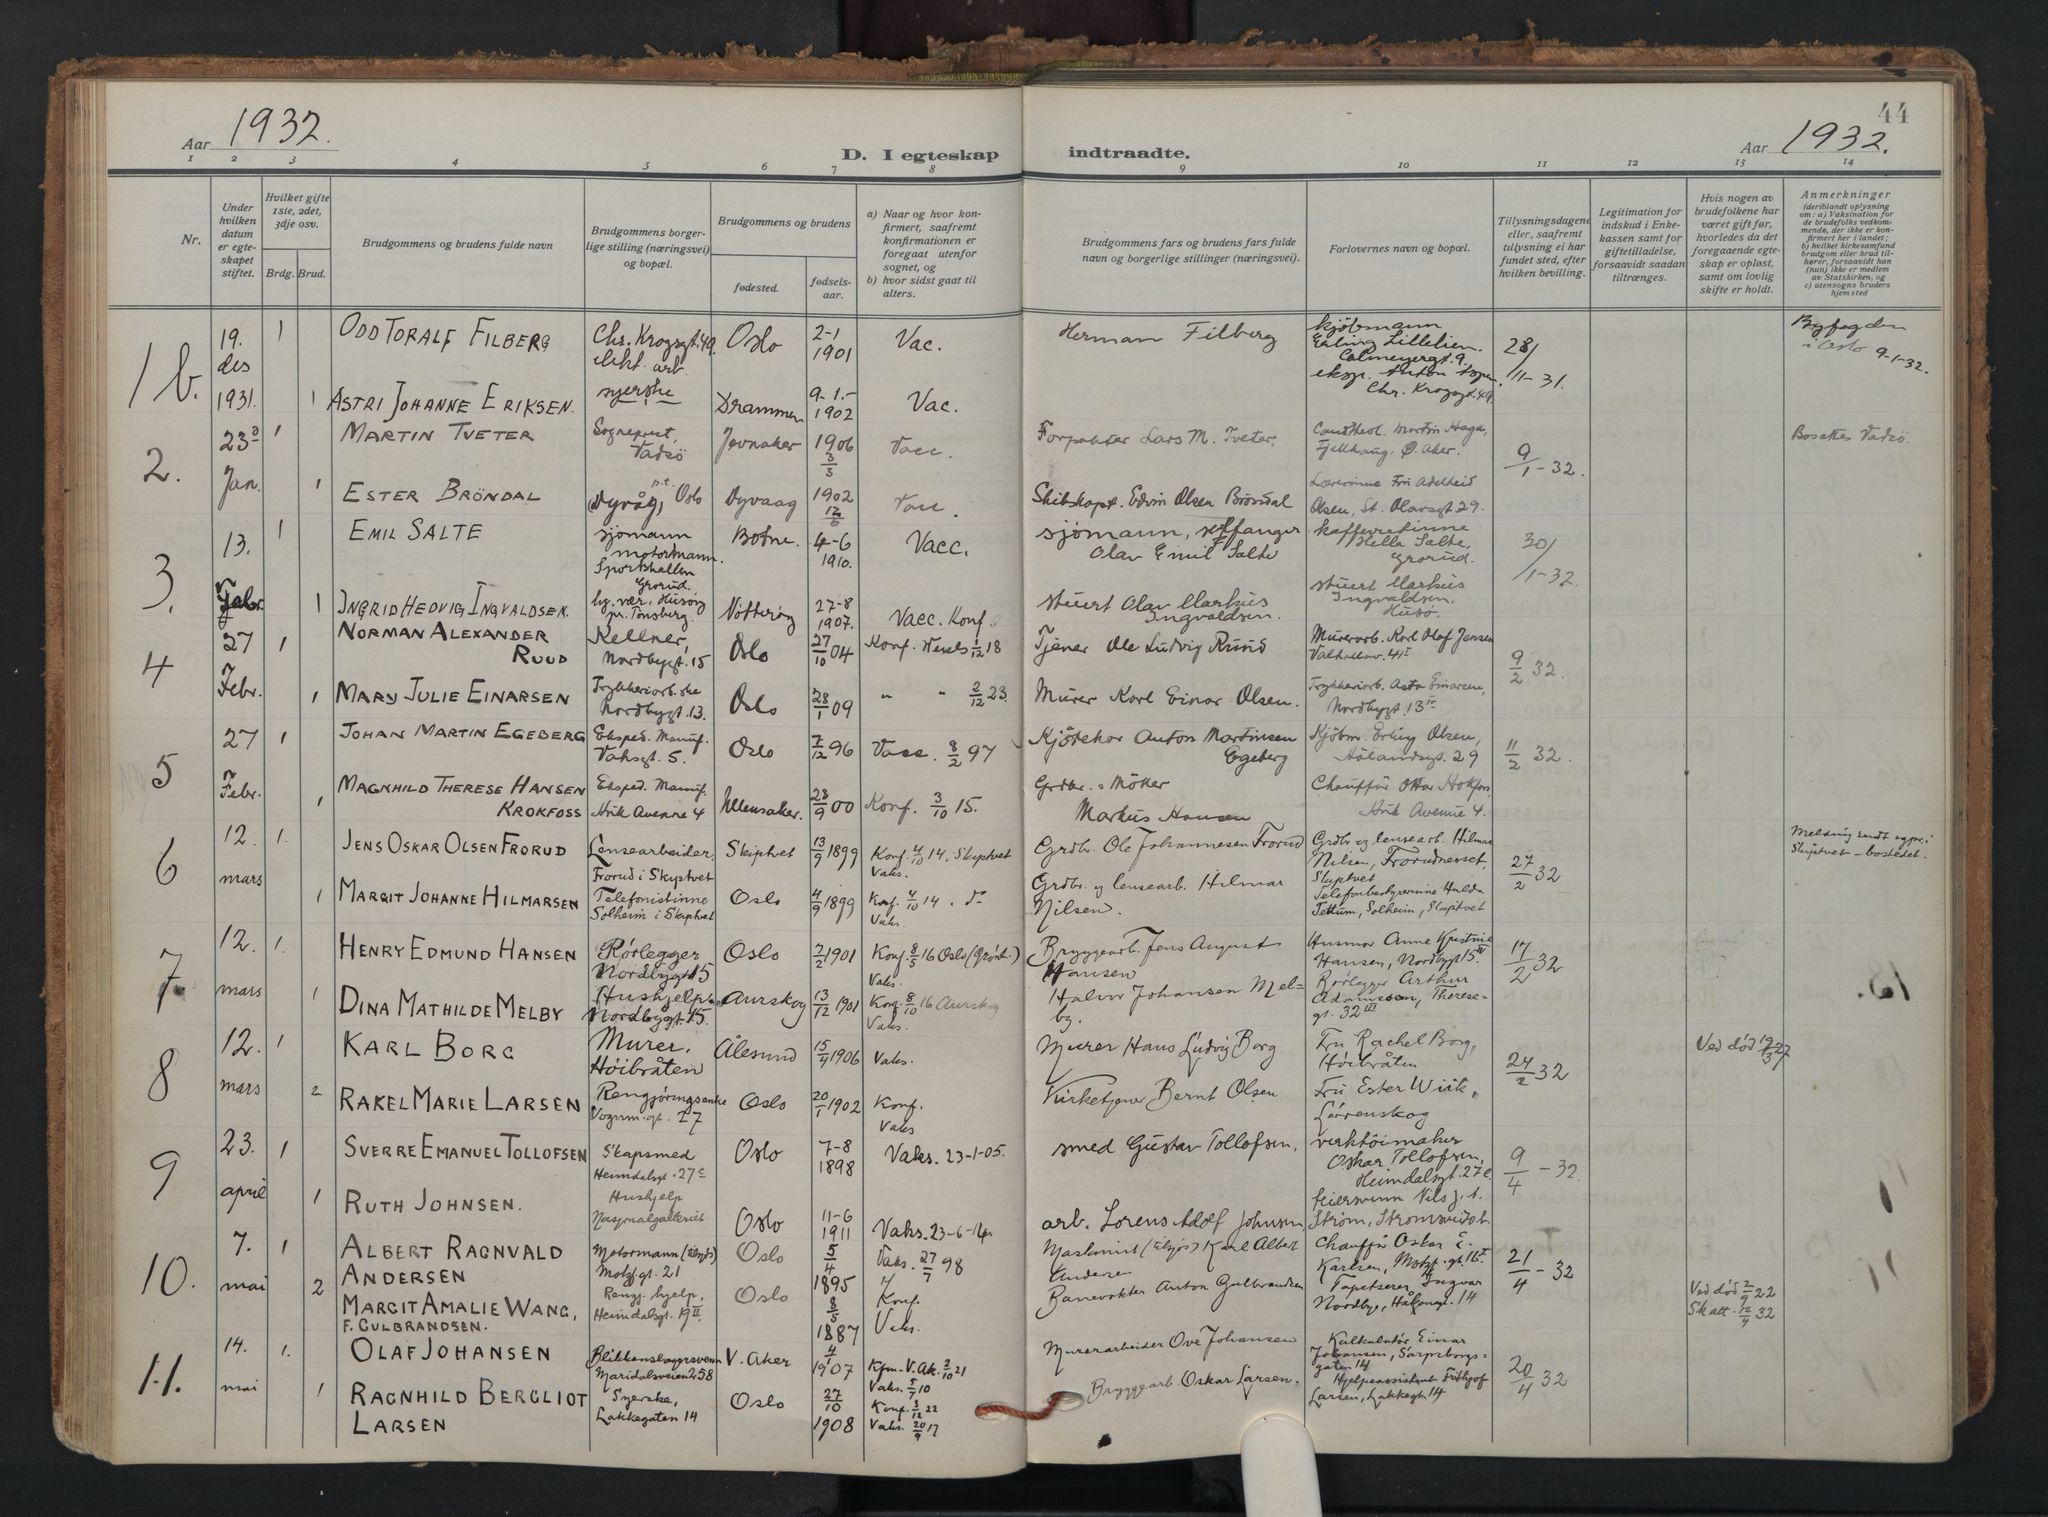 Aar 1932.
D. I egteskap indtraadte.
44
Aar 1932.
1 2 3 4 5 6 7 8 9 10 11 12 13 14
Nr.
Under hvilken datum er egteskapet stiftet.
Hvilket gifte 1ste, 2det, 3dje osv.
Brdg. Brud.
Brudgommens og brudens fulde navn
Brudgommens borgerlige stilling (næringsvei) og bopæl.
Brudgommens og brudens
fødested.
fødselsaar.
a) Naar og hvor konfirmert, saafremt konfirmationen er foregaat utenfor sognet, og
b) hvor sidst gaat til alters.
Brudgommens fars og brudens fars fulde navn og borgerlige stillinger (næringsvei).
Forlovernes navn og bopæl.
Tillysningsdagene eller, saafremt tillysning ei har fundet sted, efter hvilken bevilling.
Legitimation for indskud i Enkekassen samt for giftetilladelse, forsaavidt saadan tiltrænges.
Hvis nogen av brudefolkene har været gift før, hvorledes da det foregaaende egteskap er opløst, samt om lovlig skifte er holdt.
Anmerkninger
(deriblandt oplysning om: a) Vaksination for de brudefolks vedkommende, der ikke er konfirmert her i landet; b) hvilket kirkesamfund brudgom eller brud tilhører, forsaavidt han (hun) ikke er medlem av Statskirken, og c) utensogns bruders hjemsted
1 b. 19. des 1931. 1 ODD TORALF FILBERG Chr. Krogsgt. 49. elekt. arb. Oslo 2-1 1901 Vac. Herman Filberg kjøbmann Erling Lillelien. Calmeyergt. 9. 28/11-31. Byfogden i Oslo 9-1-32.
1 ASTRI JOHANNE ERIKSEN. syerske Drammen 9-1- 1902 Vac. eksp. Anton Chr. Krogsgt. 49.
2. 23d Jan. 1 MARTIN TVETER Sogneprest, Vadsø Jevnaker 1906 3/3 Vacc. Forpakter Lars M. Tveter, Cand. theol. Martin Haga, Fjellhaug, Ø. Aker. 9/1-32. Bosattes Vadsø.
1 ESTER BRÖNDAL Dyvåg, p.t. Oslo Dyvaag 1902 12/6 Vacc. Skibskapt. Edvin Olsen Bröndal Lærerinne Frk Adelheid Olsen, St. Olavsgt 29.
3. 13. Febr. 1 EMIL SALTE sjømann motormann. Sportshallen Grorud. Botne. 4-6 1910. Vacc. sjömann, selfanger Olav Emil Salte kaffevertinne Hella Salte, Grorud. 30/1-32.
1 INGRID HEDVIG INGVALDSEN. hj. vær., Husøy pr. Tønsberg. Nötterøy 27-8 1907. Vacc. Konf. stuert Olav Markus Ingvaldsen. stuert Markus Ingvaldsen, Husø.
4 27 Febr. 1 NORMAN ALEXANDER RUUD Kellner, Nordbygt. 15 Oslo 27/10 04 Konf. 1/12 18 Tjener Ole Ludvig Ruud Murerarb. Karl Olaf Jensen Valhallav. 41I 9/2 32.
1 MARY JULIE EINARSEN Trykkeriarb.ske Nordbygt. 13. Oslo 28/1 09 " " 2/12 23. Murer Karl Einar Olsen. Trykkeriarb. Asta Einarsen, Nordbygt. 13
5 27 Febr. 1 JOHAN MARTIN EGEBERG Eksped. Manuf. Vahsgt. 5. Oslo 7/12 96 Vacc. 8/2 97 Anton Martinsen Egeberg Kjøbm. Erling Olsen, Hølandsgt. 29 11/2 32.
1 MAGNHILD THERESE HANSEN KROKFOSS Eksped. Manuf. Avenue 4 Ullensaker. 28/9 00 Konf. 3/10 15. Grdbr. Markus Hansen Chauffør Ottar Avenue 4.
6 12. mars 1. JENS OSKAR OLSEN FRORUD Lensearbeider, Frorud i Skiptvet Skiptvet 13/9 1899 Konf. 4/10 14, Skiptvet Vaks. Grdbr. Ole Johannesen Frorud Grdbr. og lensearb. Hilmar Nilsen, Frorudnesset, Skiptvet 27/2 32 Melding sendt spr. i Skiptvet - bostedet.
1 MARGIT JOHANNE HILMARSEN Telefonistinne Solheim i Skiptvet Oslo 4/9 1899 Konf. 4/10 14. do Vaks. Grdbr. og lensearb. Hilmar Nilsen. Telefonbestyrerinne Hulda Solheim, Skiptvet
7 12. mars 1. HENRY EDMUND HANSEN Rørlegger Nordbygt 15 Oslo 7/2 1901 Konf. 8/5 16 Oslo (Grønl.) Vaks. Bryggearb. Jens August Hansen Husmor Anne Kristine Hansen, Nordbygt. 15 17/2 32
1 DINA MATHILDE MELBY Hushjelp Nordbygt 15. Aurskog 13/12 1901 Konf. 8/10 16 Aurskog Vaks. Halvor Johansen Melby. Rørlegger Arthur Adamsson, Theresegt. 32III
8 12. mars 1 KARL BORG Murer, Höibråten Ålesund 15/4 1906 Vaks. Murer Hans Ludvig Borg Fru Rachel Borg, Höibråten 24/2 32 Ved død 19/3 27
2 RAKEL MARIE LARSEN Rengjøringsenke gt. 27 Oslo 20/1 1902 Konf. Vaks Kirketjener Bernt Olsen Fru Ester Wiik, Lørenskog
9 23. april 1 SVERRE EMANUEL TOLLOFSEN Skapsmed Heimdalsgt. 27c Oslo 7-8 1898 Vaks. 23-1-05. smed Gustav Tollofsen. verktöimaker Oskar Tollofsen, Heimdalsgt. 27c. 9/4-32.
1 RUTH JOHNSEN. Hushjelp Nasjonalgalleriet Oslo 11-6 1911 Vaks. 23-6-14. arb. Lorens Adolf Johnsen feiersvenn Nils Strøm,
10. 7. mai 1 ALBERT RAGNVALD ANDERSEN Motormann (tilsjøs) Motzfgt. 21 Oslo 5/4 1895 Vaks. 27/7 98 Maskinist (tilsjøs) Karl Albert Andersen Chauffør Oskar E. Karlsen, Motzf. gt. 16I 21/4-32
2 MARGIT AMALIE WANG, F. GULBRANDSEN. Rengj. hjelp, Heimdalsgt. 19II Oslo 8/5 1887 Konf. Vaks. Banevokter Anton Gulbrandsen Tapetserer Ingvar Nordbye, 14 Ved død 2/9 22 Skatt. 12/4 32
11. 14. mai 1. OLAF JOHANSEN Blikkenslagersvenn Maridalsveien 258 V. Aker 4/1 1907 Kfm. V. Ak. 2/10 21 Vaks. 5/7 10 Murerarbeider Ove Johansen Kalkulatör Einar Johansen, Sarpsborggaten 14 20/4 32
1 RAGNHILD BERGLIOT LARSEN Syerske, Lakkegaten 14 Oslo 27/10 1908 Konf. 3/12 22 Vaks. 20/9 17 Bryggearb Oskar Larsen. Hjelpeassistent Frithjof Larsen, Lakkegt. 14